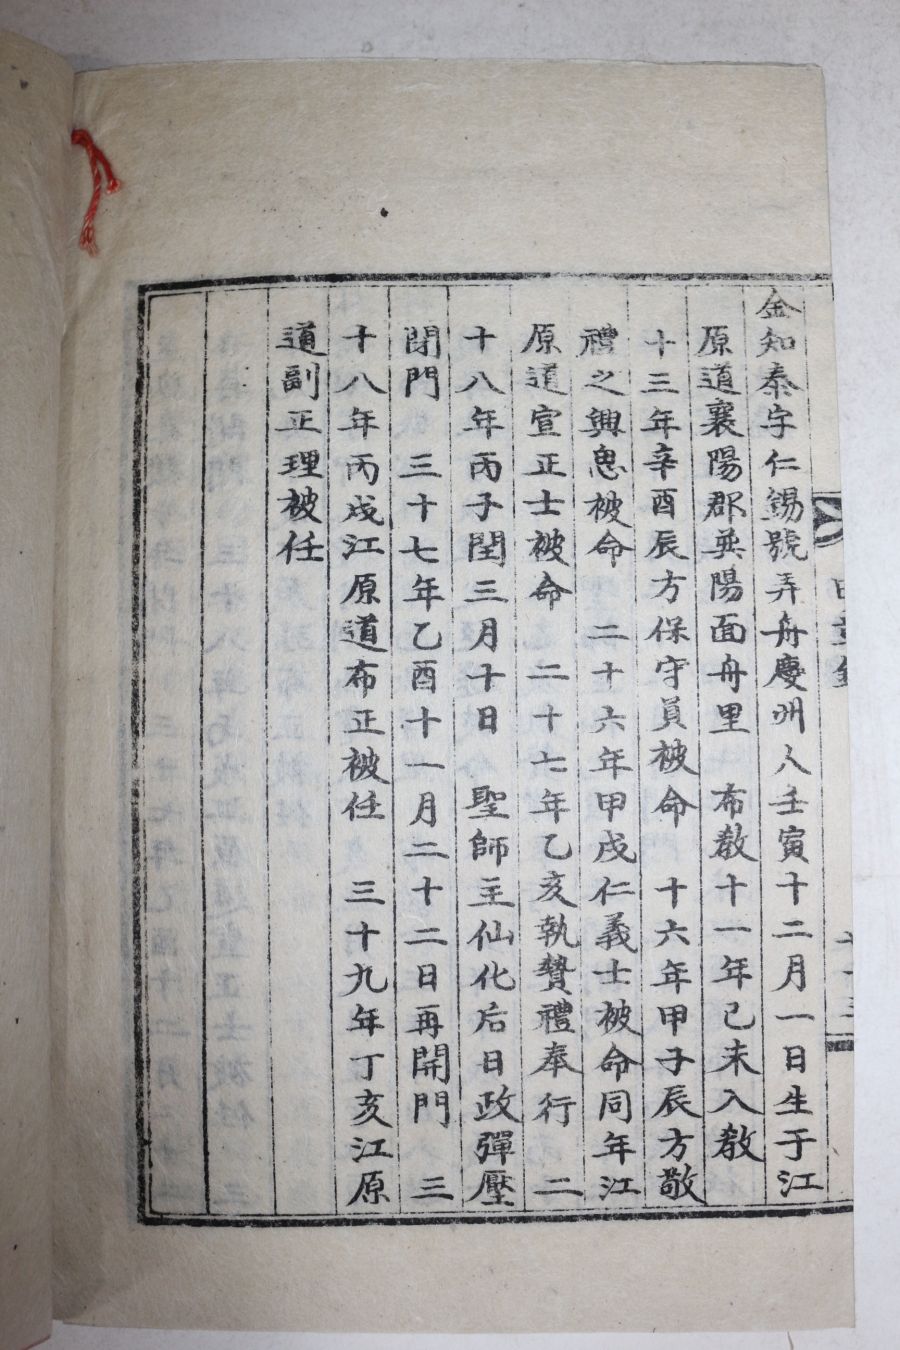 金知泰字仁錫號弄舟慶州人壬寅十二月一日生于江
原道襄陽郡巽陽面舟里 布敎十一年己未入敎
十三年辛酉辰方保守員被命 十六年甲子辰方敬
禮之興恩被命 二十六年甲戌仁義士被命同年江
原道宣正士被命 二十七年乙亥執贊禮奉行 二
十八年丙子閏三月十日 聖師主仙化后日政彈壓
閉門 三十七年乙酉十一月二十二日再開門 三
十八年丙戌江原道布正被任 三十九年丁亥江原
道副正理被任